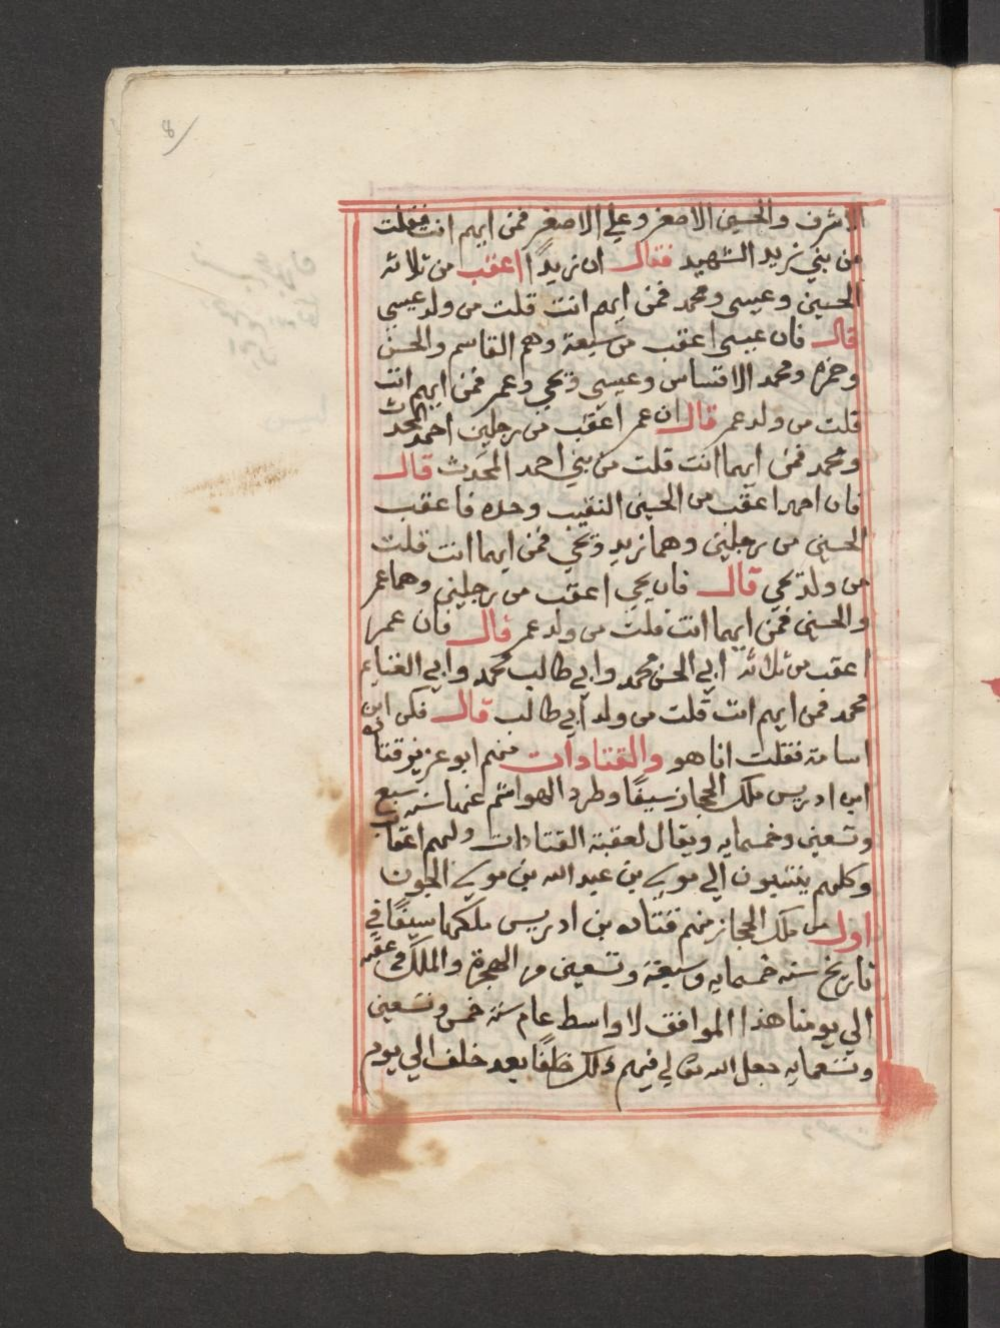 الاشرف والحسين الاصغر وعلي الاصغر فمن ايهم انت فقلت
من بني زيد الشهيد فقال ان زيدًا اعقب من ثلاثة
الحسين وعيسى ومحمد فمن ايهم انت قلت من ولد عيسى
قال فان عيسى اعقب من سبعة وهم القاسم والحسن
وحمزه ومحمد الاقساس وعيسى ويحيي وعمر فمن ايهم انت
قلت من ولد عمر قال ان عمر اعقب من رجلين احمد المحدث
ومحمد فمن ايهما انت قلت من بني احمد المحدث قال
فان احمد اعقب من الحسين النقيب وحده فاعقب
الحسين من رجلين وهما زيد ويحيي فمن ايهما انت قلت
من ولد يحيي قال فان يحيي اعقب من رجلين وهما عمر
والحسين فمن ايهما انت قلت من ولد عمر قال فان عمر
اعقب من ثلاثة ابي الحسن محمد وابي طالب محمد وابي الغنايم
محمد فمن ايهم انت قلت من ولد ابي طالب قال فكن ابن
اسامة فقلت انا هو والقتادات منهم ابو عزيز قتاده
ابن ادريس ملك الحجاز سيفًا وطرد الهواشم عنها سنة سبع
وتسعين وخمسمايه ويقال لعقبة القتادات ولهم اعقاب
وكلهم ينتسبون الي موسي بن عبد الله بن موسي الجون
اول من ملك الحجاز منهم قتاده بن ادريس ملكها سيفًا في
تاريخ سنة خمسمايه وسبعة وتسعين من الهجرة والملك في عقبه
الي يومنا هذا الموافق لاواسط عام سنة خمس وتسعين
وتسعمايه جعل الله تعالي فيهم ذلك خلفًا بعد خلف الي يوم